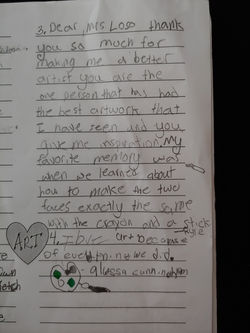 3. Dear Mrs. Loso thank
you so much for
making me a better
artist you are the
one person that has had
the best artwork that
I have seen and you
give me inspiration. My
favorite memory was
when we learned about
how to make the two
faces exactly the same
with the crayon and a stick
ART
4. art because
of everything we did.